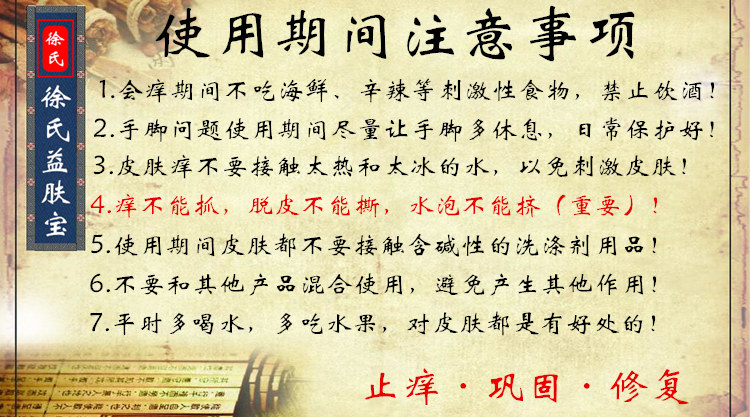 使用期间注意事项
徐氏
徐氏益肤宝
1.会痒期间不吃海鲜、辛辣等刺激性食物，禁止饮酒！
2.手脚问题使用期间尽量让手脚多休息，日常保护好！
3.皮肤痒不要接触太热和太冰的水，以免刺激皮肤！
4.痒不能抓，脱皮不能撕，水泡不能挤（重要）！
5.使用期间皮肤都不要接触含碱性的洗涤剂用品！
6.不要和其他产品混合使用，避免产生其他作用！
7.平时多喝水，多吃水果，对皮肤都是有好处的！
止痒·巩固·修复